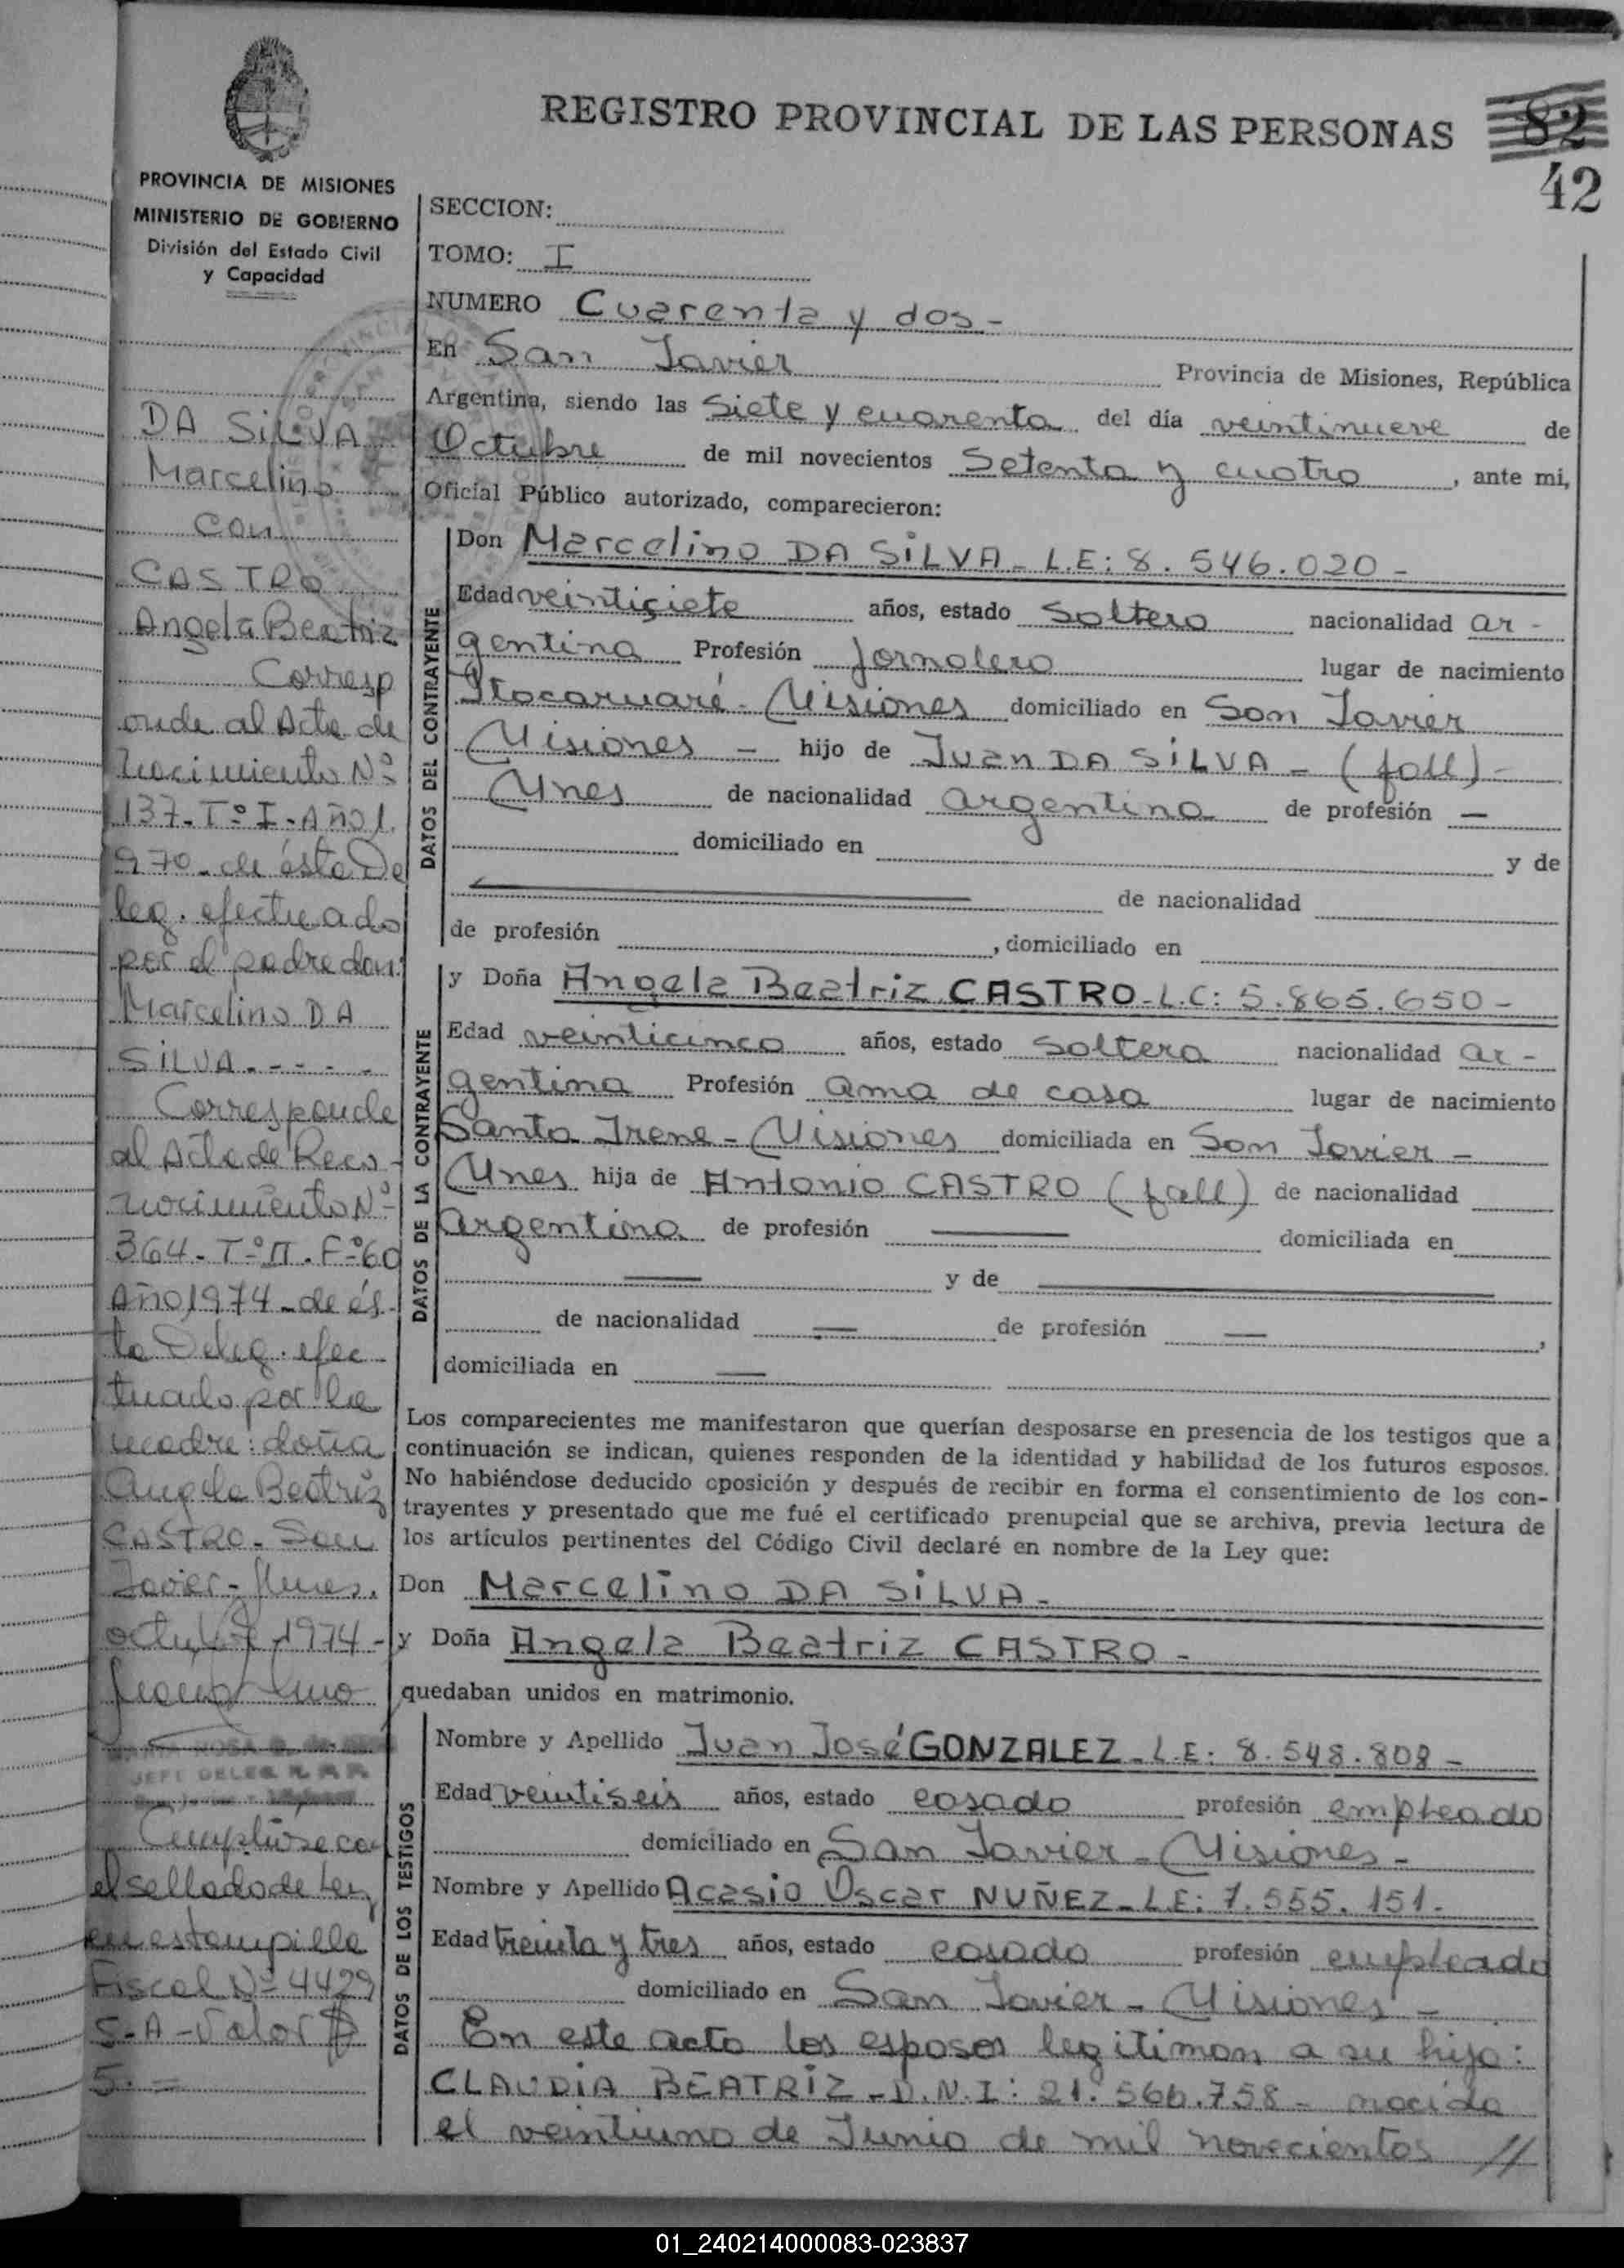 REGISTRO PROVINCIAL DE LAS PERSONAS
82
42
PROVINCIA DE MISIONES
MINISTERIO DE GOBIERNO
División del Estado Civil
y Capacidad
DA SILVA
Marcelino
con
CASTRO
Angela Beatriz
Corresp
onde al Acta de
Nacimiento Nº
137-Tº I-Año 1.
970-de ésta De
leg. efectuado
por el padre don:
Marcelino DA
SILVA.- - - -
Corresponde
al Acta de Reco-
nocimiento Nº
364-Tº II.Fº 60
Año 1974-de és-
ta Deleg. efec-
tuado por la
madre: doña
Angela Beatriz
CASTRO-San
Javier-Mnes.
octubre, 1974-
JEFE DELEG R.P.P.
Cumplióse con
el sellado de Ley
en estampilla
Fiscal Nº 4429
S-A-Valor $
5.=
SECCION:
TOMO: I
NUMERO Cuarenta y dos-
En San Javier Provincia de Misiones, República
Argentina, siendo las siete y cuarenta del día veintinueve de
Octubre de mil novecientos Setenta y cuatro, ante mi,
Oficial Público autorizado, comparecieron:
DATOS DEL CONTRAYENTE
Don Marcelino DA SILVA-L.E: 8.546.020-
Edad veintisiete años, estado Soltero nacionalidad ar-
gentina Profesión Jornalero lugar de nacimiento
Itacaruaré-Misiones domiciliado en San Javier
Misiones - hijo de Juan DA SILVA-(fall)-
Mnes de nacionalidad argentina de profesión —
domiciliado en y de
de nacionalidad
de profesión , domiciliado en
DATOS DE LA CONTRAYENTE
y Doña Angela Beatriz CASTRO-L.C: 5.865.650-
Edad veinticinco años, estado Soltera nacionalidad ar-
gentina Profesión ama de casa lugar de nacimiento
Santa Irene-Misiones domiciliada en San Javier-
Mnes hija de Antonio CASTRO (fall) de nacionalidad
argentina de profesión — domiciliada en
— y de —
de nacionalidad — de profesión — ,
domiciliada en —
Los comparecientes me manifestaron que querían desposarse en presencia de los testigos que a
continuación se indican, quienes responden de la identidad y habilidad de los futuros esposos.
No habiéndose deducido oposición y después de recibir en forma el consentimiento de los con-
trayentes y presentado que me fué el certificado prenupcial que se archiva, previa lectura de
los artículos pertinentes del Código Civil declaré en nombre de la Ley que:
Don Marcelino DA SILVA-
y Doña Angela Beatriz CASTRO-
quedaban unidos en matrimonio.
DATOS DE LOS TESTIGOS
Nombre y Apellido Juan José GONZALEZ-L.E: 8.548.808-
Edad veintiseis años, estado casado profesión empleado
domiciliado en San Javier-Misiones-
Nombre y Apellido Acasio Oscar NUÑEZ-L.E: 7.555.151-
Edad treinta y tres años, estado casado profesión empleado
domiciliado en San Javier-Misiones-
En este acto los esposos legitiman a su hija:
CLAUDIA BEATRIZ-D.N.I: 21.566.758-nacida
el veintiuno de Junio de mil novecientos //
01_240214000083-023837